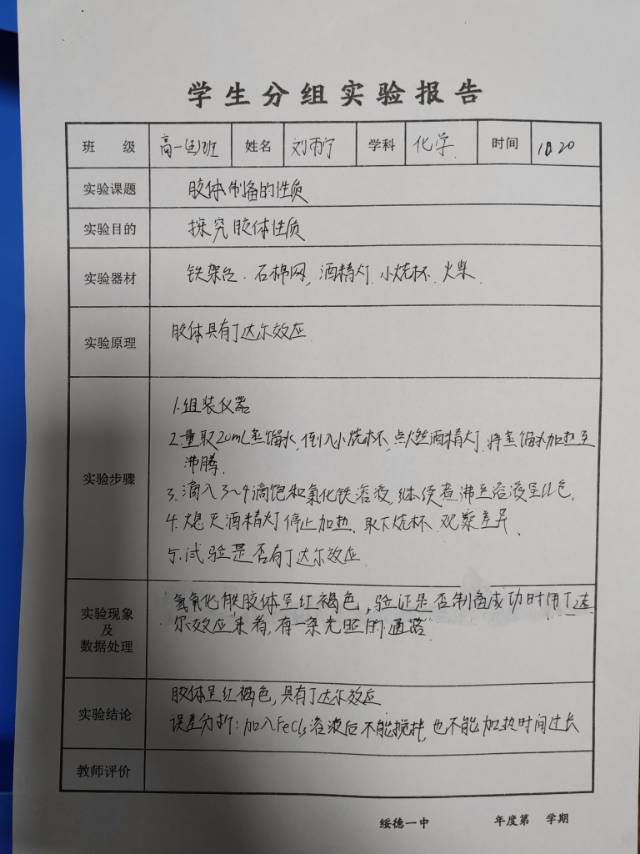 学生分组实验报告
班 级 高一 班 姓名 刘雨宁 学科 化学 时间 10.20
实验课题 胶体制备的性质
实验目的 探究胶体性质
实验器材 铁架台. 石棉网, 酒精灯. 小烧杯. 火柴.
实验原理 胶体具有丁达尔效应
实验步骤
1. 组装仪器
2. 量取20mL蒸馏水, 倒入小烧杯, 点燃酒精灯. 将蒸馏水加热至
沸腾.
3. 滴入3~4滴饱和氯化铁溶液, 继续煮沸至溶液呈 色.
4. 熄灭酒精灯停止加热. 取下烧杯 观察差异.
5. 试验是否有丁达尔效应
实验现象
及
数据处理
氢氧化铁胶体呈红褐色, 验证是否制备成功时用丁达
尔效应来看, 有一条光照的通路
实验结论
胶体呈红褐色, 具有丁达尔效应
误差分析: 加入FeCl₃溶液后不能搅拌, 也不能加热时间过长
教师评价
绥德一中 年度第 学期